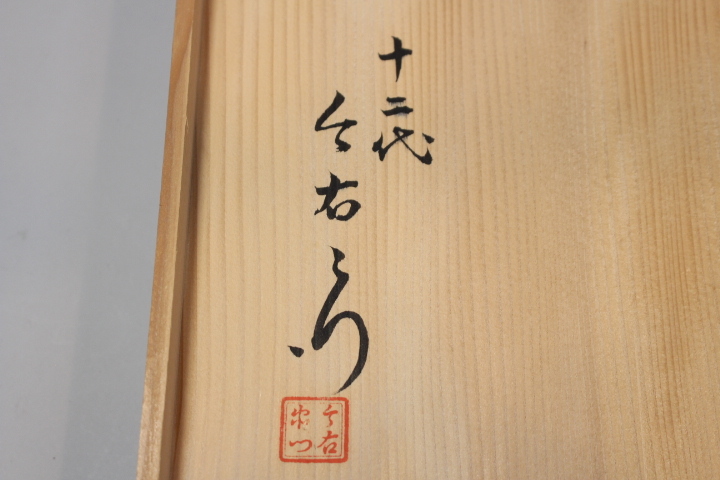 十二代
今右衛門
今右
衛門